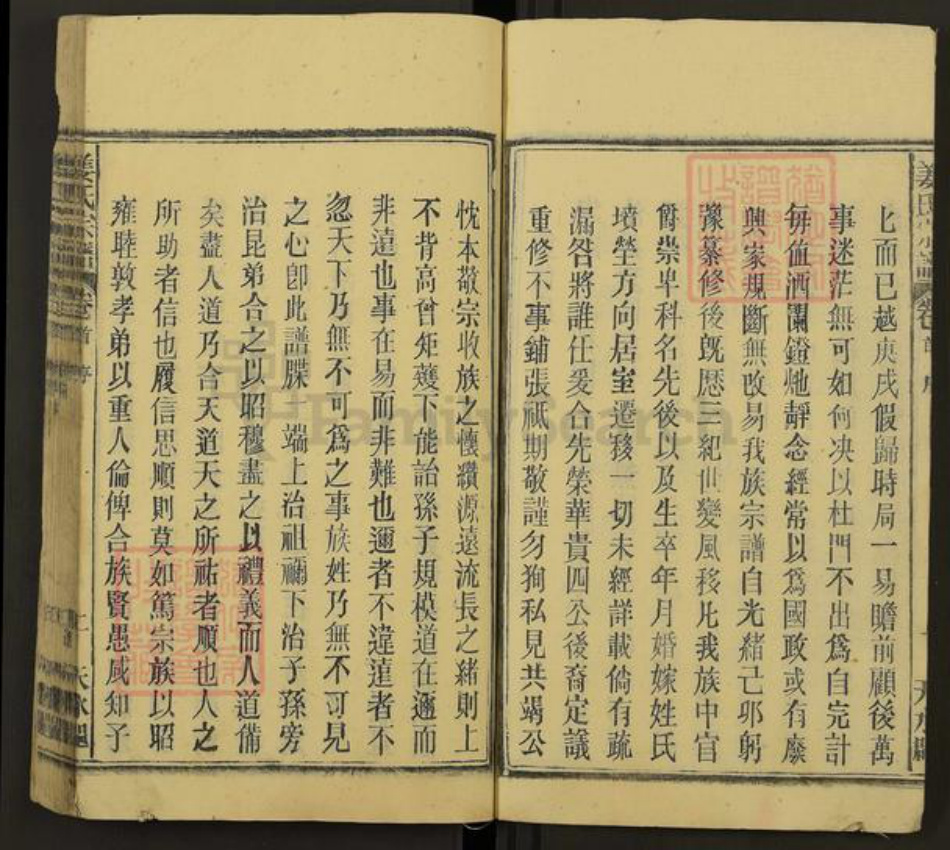 七而已越庚戌假歸時局一易瞻前顧後萬
事迷茫無可如何决以杜門不出爲自完計
每值酒闌鐙灺靜念經常以爲國政或有廢
興家規斷無改易我族宗譜自光緒己邜躬
豫纂修後旣歷三紀世變風移凡我族中官
爵崇卑科名先後以及生卒年月婚嫁姓氏
墳塋方向居室遷移一切未經詳載倘有疏
漏咎將誰任爰合先榮華貴四公後裔定議
重修不事鋪張祇期敬謹勿狥私見共竭公
忱本敬宗收族之懷纘源遠流長之緒則上
不背高曾矩矱下能詒孫子規模道在邇而
非遠也事在易而非難也邇者不違遠者不
忽天下乃無不可爲之事族姓乃無不可見
之心卽此譜牒一端上治祖禰下治子孫旁
治昆弟合之以昭穆盡之以禮義而人道備
矣盡人道乃合天道天之所祐者順也人之
所助者信也履信思順則莫如篤宗族以昭
雍睦敦孝弟以重人倫俾合族賢愚咸知子
姜氏宗譜 卷首 序 二 天水郡
FamilySearch